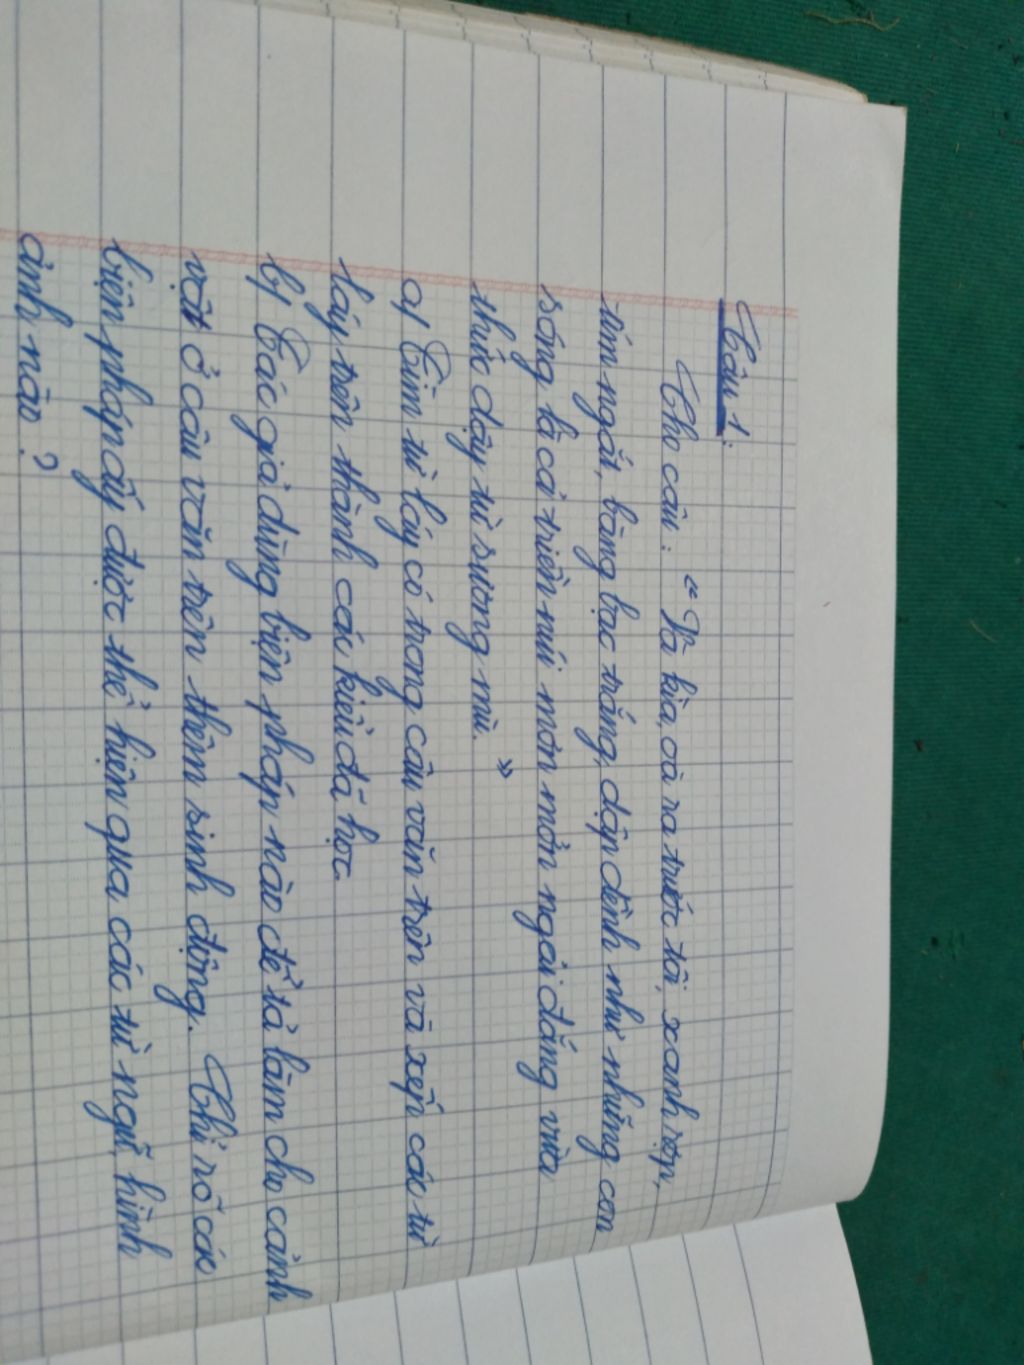 Câu 1:
Cho câu: "Và kìa, oà ra trước tôi, xanh rợp,
tím ngắt, bàng bạc trắng, dập dềnh như những con
sóng là cả triền núi mơn mởn ngải đắng vừa
thức dậy từ sương mù."
a) Tìm từ láy có trong câu văn trên và xếp các từ
láy trên thành các kiểu đã học.
b) Tác giả dùng biện pháp nào để tả làm cho cảnh
vật ở câu văn trên thêm sinh động. Chỉ rõ các
biện pháp ấy được thể hiện qua các từ ngữ, hình
ảnh nào?